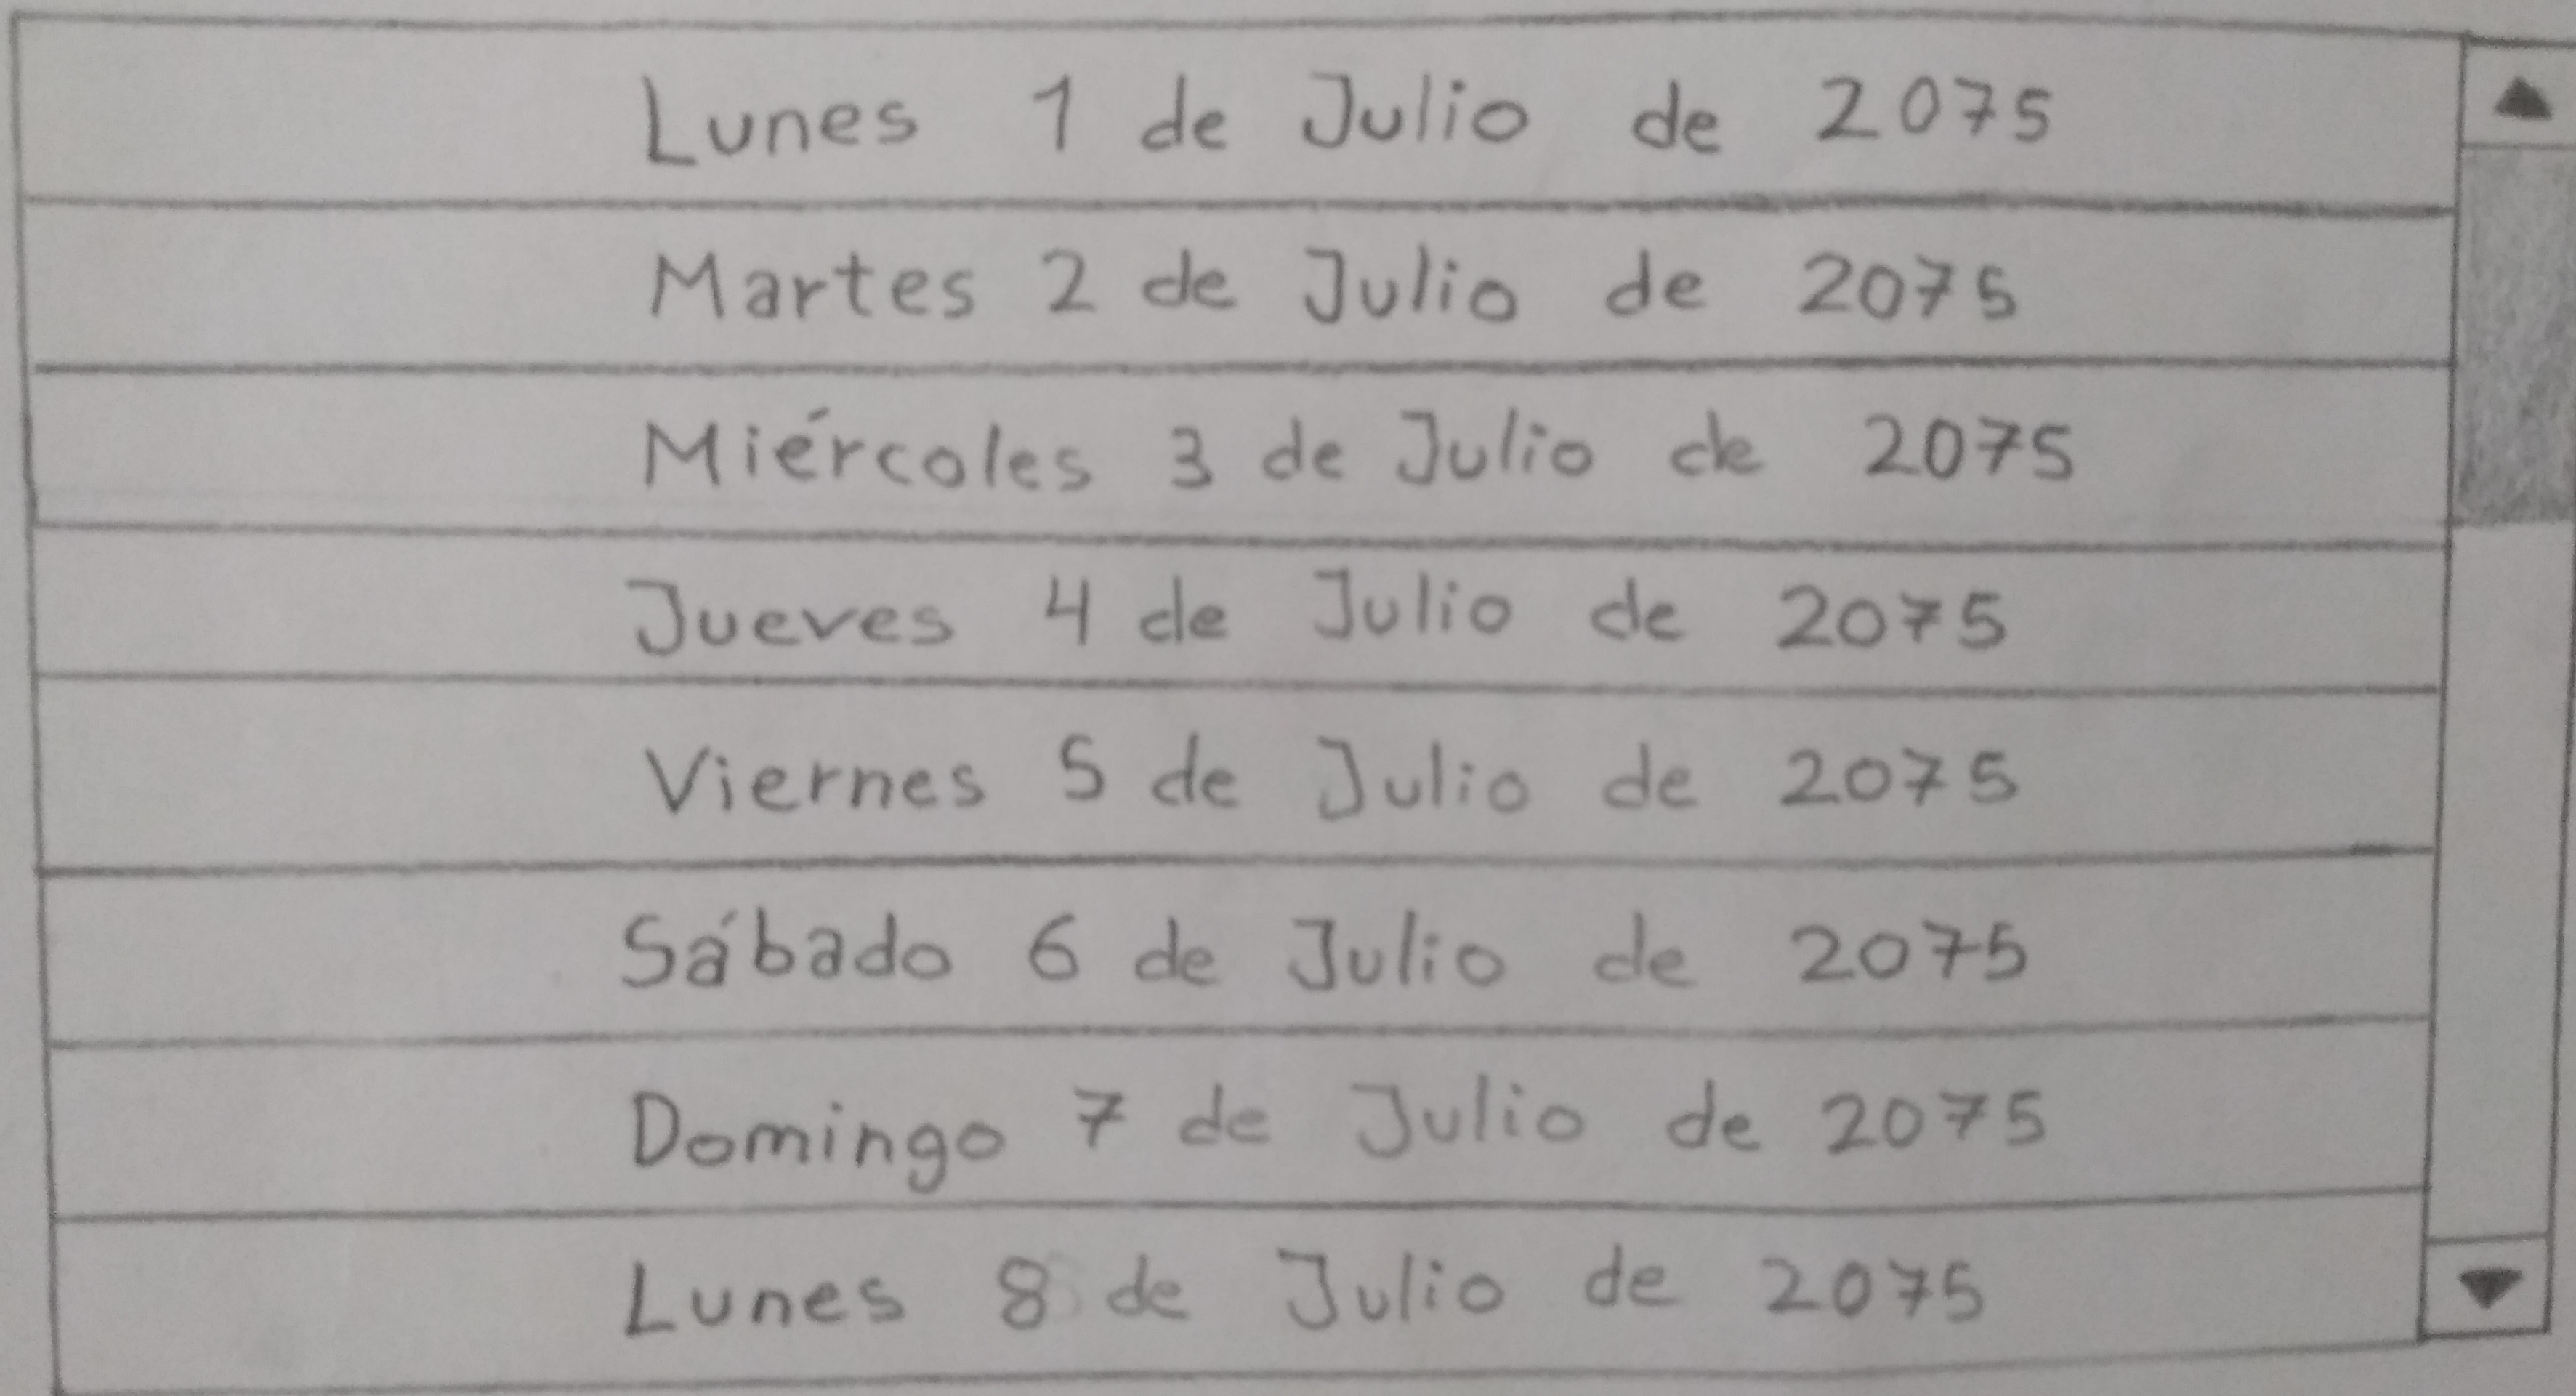 Lunes 1 de Julio de 2075
Martes 2 de Julio de 2075
Miércoles 3 de Julio de 2075
Jueves 4 de Julio de 2075
Viernes 5 de Julio de 2075
Sábado 6 de Julio de 2075
Domingo 7 de Julio de 2075
Lunes 8 de Julio de 2075